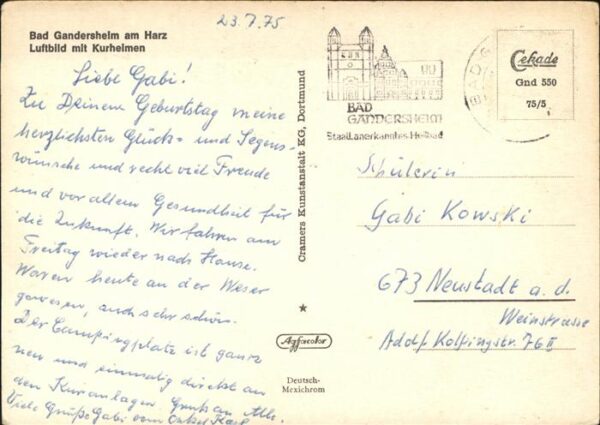 23.7.75
Bad Gandersheim am Harz
Luftbild mit Kurheimen
Liebe Gabi!
Zu Deinem Geburtstag meine
herzlichsten Glück- und Segens-
wünsche und recht viel Freude
und vor allem Gesundheit für
die Zukunft. Wir fahren am
Freitag wieder nach Hause.
Waren heute an der Weser
gewesen, auch sehr schön.
Der Campingplatz ist ganz
neu und einmalig direkt an
den Kuranlagen. Gruß an Alle.
Viele Grüße Gabi vom Onkel Karl
Cramers Kunstanstalt KG, Dortmund
Agfacolor
Deutsch-
Mexichrom
BAD
GANDERSHEIM
Staatl. anerkanntes Heilbad
BAD G
Cekade
Gnd 550
75/5
Schülerin
Gabi Kowski
673 Neustadt a. d.
Weinstrasse
Adolf Kolpingstr. 76 II